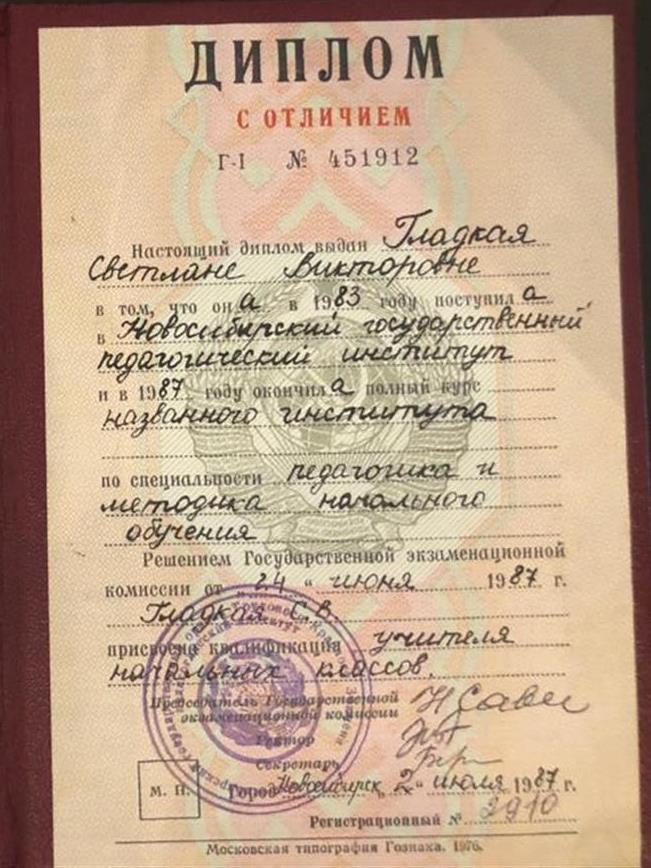 ДИПЛОМ
С ОТЛИЧИЕМ
Г-I № 451912
Настоящий диплом выдан Гладкая
Светлане Викторовне
в том, что она в 1983 году поступила
в Новосибирский государственный
педагогический институт
и в 1987 году окончила полный курс
названного института
по специальности педагогика и
методика начального
обучения
Решением Государственной экзаменационной
комиссии от 24 " июня 1987 г.
Гладкая С.В.
присвоена квалификация учителя
начальных классов.
Председатель Государственной
экзаменационной комиссии
Ректор
Секретарь
М. П. Город Новосибирск 2 " июля 1987 г.
Регистрационный № 2910
Московская типография Гознака. 1976.